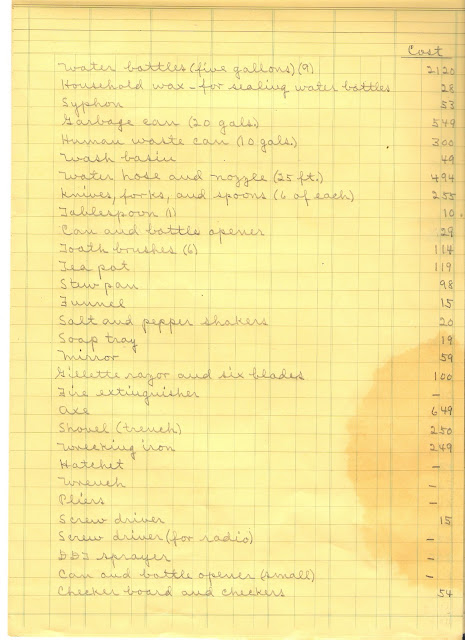 Cost
Water bottles (five gallons) (9) 2120
Household wax - for sealing water bottles 28
Syphon 53
Garbage can (20 gals.) 549
Human waste can (10 gals.) 300
Wash basin 49
Water hose and nozzle (25 ft.) 494
Knives, forks, and spoons (6 of each) 255
Tablespoon (1) 10
Can and bottle opener 29
Tooth brushes (6) 114
Tea pot 119
Stew pan 98
Funnel 15
Salt and pepper shakers 20
Soap tray 19
Mirror 59
Gillette razor and six blades 100
Fire extinguisher -
Axe 649
Shovel (trench) 250
Wrecking iron 249
Hatchet -
Wrench -
Pliers -
Screw driver 15
Screw driver (for radio) -
DDT sprayer -
Can and bottle opener (small) -
Checker board and checkers 54